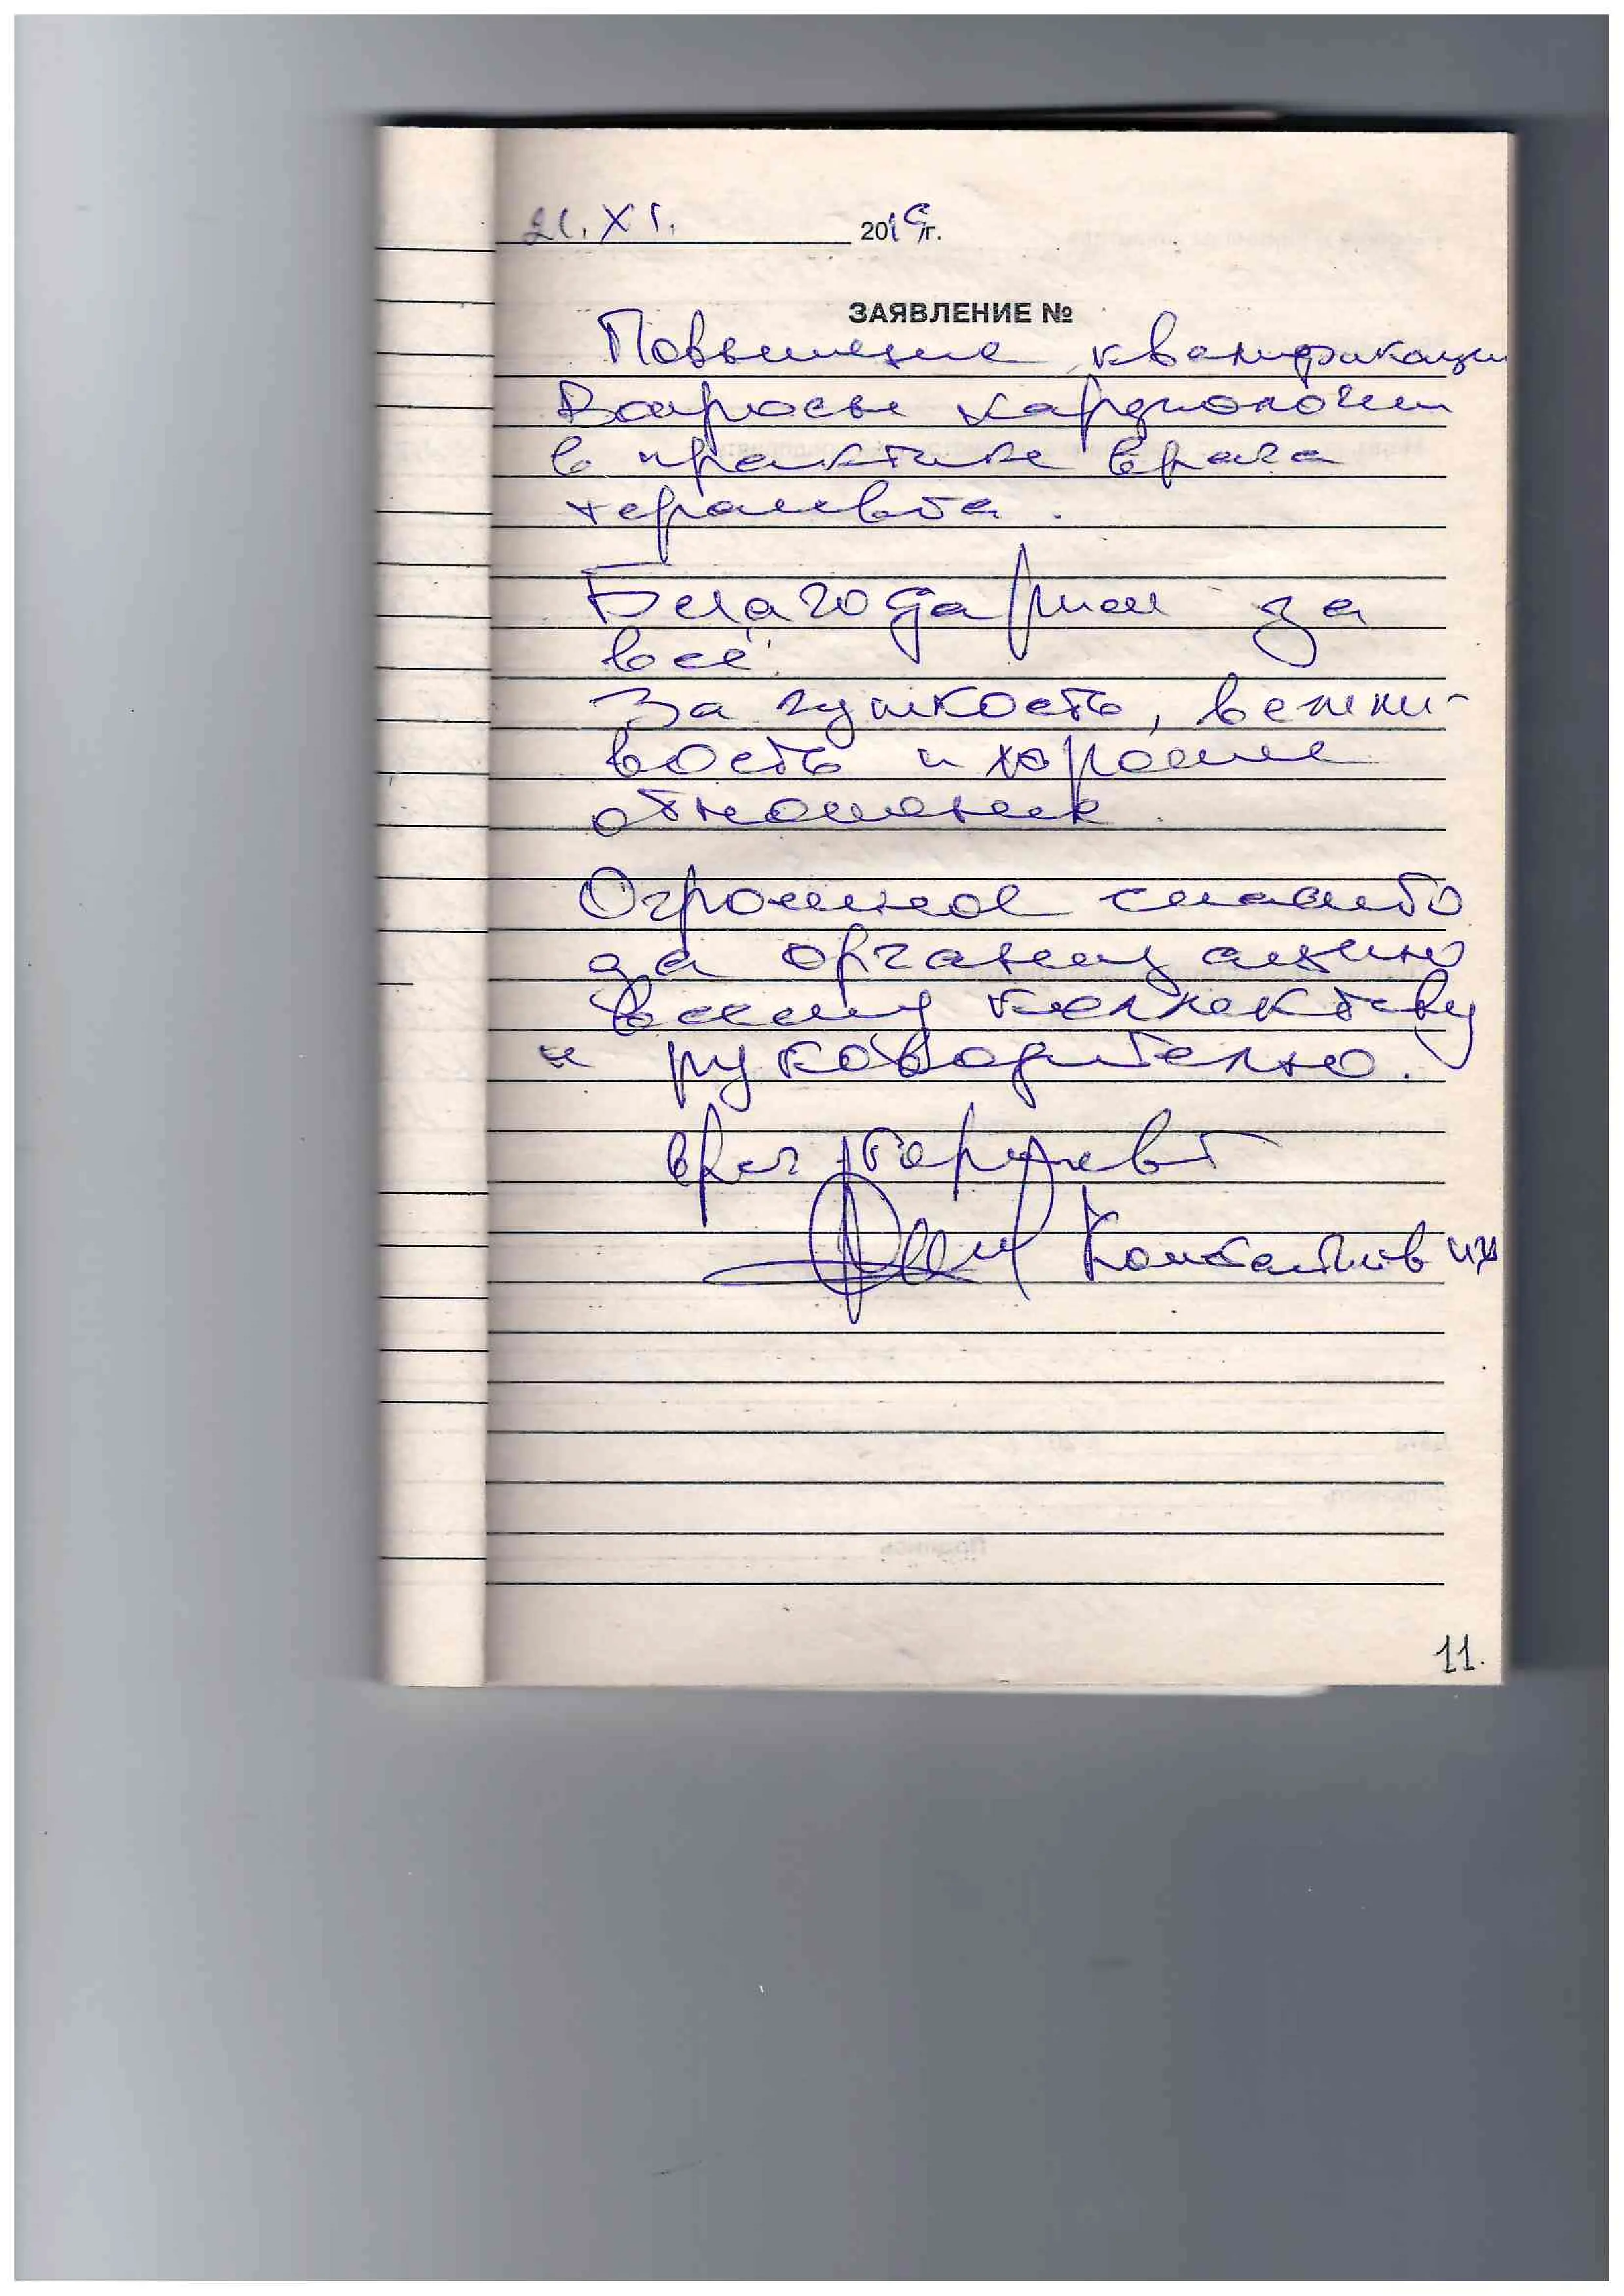 21. XI. 2019г.
ЗАЯВЛЕНИЕ №
Повышение квалификации
Вопросы кардиологии
в практике врача
терапевта.
Благодарим за
всё.
За чуткость, вежли-
вость и хорошее
отношение.
Огромное спасибо
за организацию
всему коллективу
и руководителю.
врач терапевт
11.